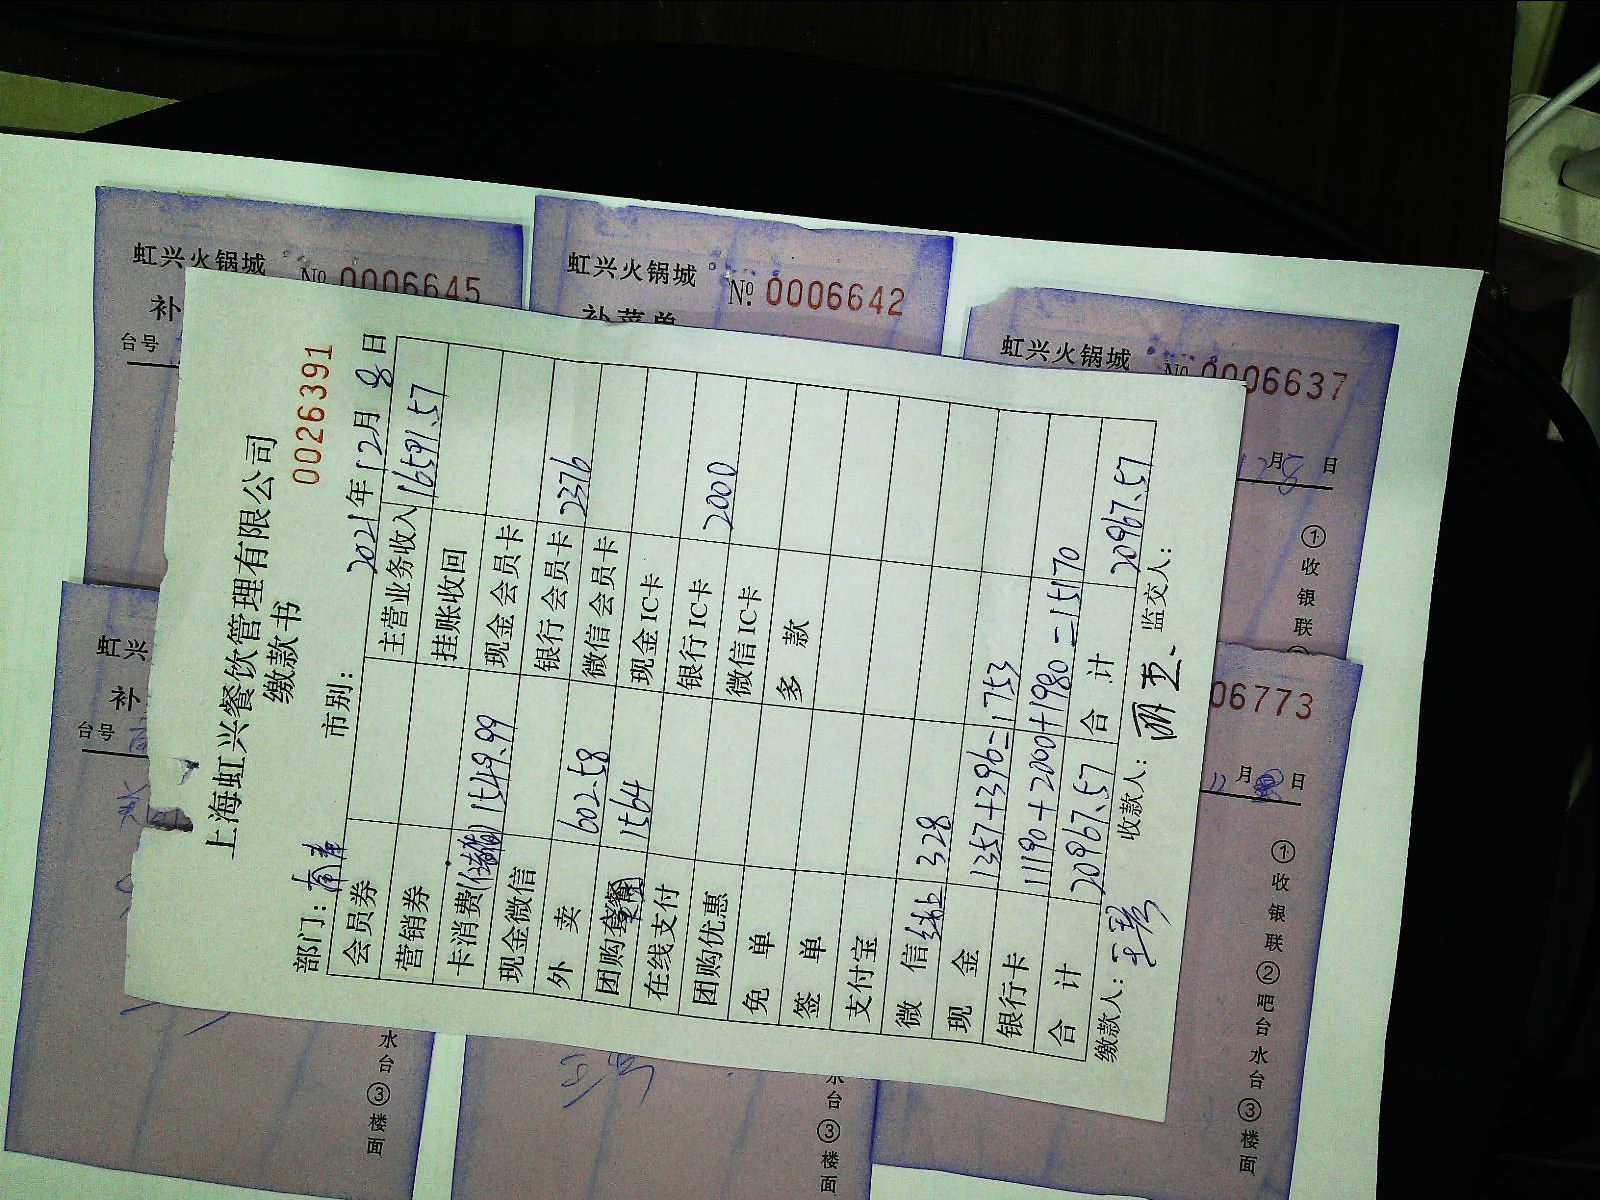 上海虹兴餐饮管理有限公司
缴款书
0026391
部门: 市别: 2021年12月8日
会员券 主营业务收入 16591.57
营销券 挂账收回
卡消费(储值) 1549.99 现金会员卡
现金微信 银行会员卡 2376
外 卖 602.58 微信会员卡
团购套餐 1564 现金IC卡
在线支付 银行IC卡 2000
团购优惠 微信IC卡
免 单 多 款
签 单
支付宝
微 信 线上 328
现 金 1357+396=1753
银行卡 11190+2000+1980=15170
合 计 20967.57 合 计 20967.57
缴款人: 收款人: 监交人:
虹兴火锅城 № 0006645
补
台号
虹兴火锅城 № 0006642
补菜单
虹兴火锅城 № 0006637
月 日
①收银联
虹兴
补
台号
水台③楼面
水台③楼面
06773
12月 日
①收银联②吧台水台③楼面